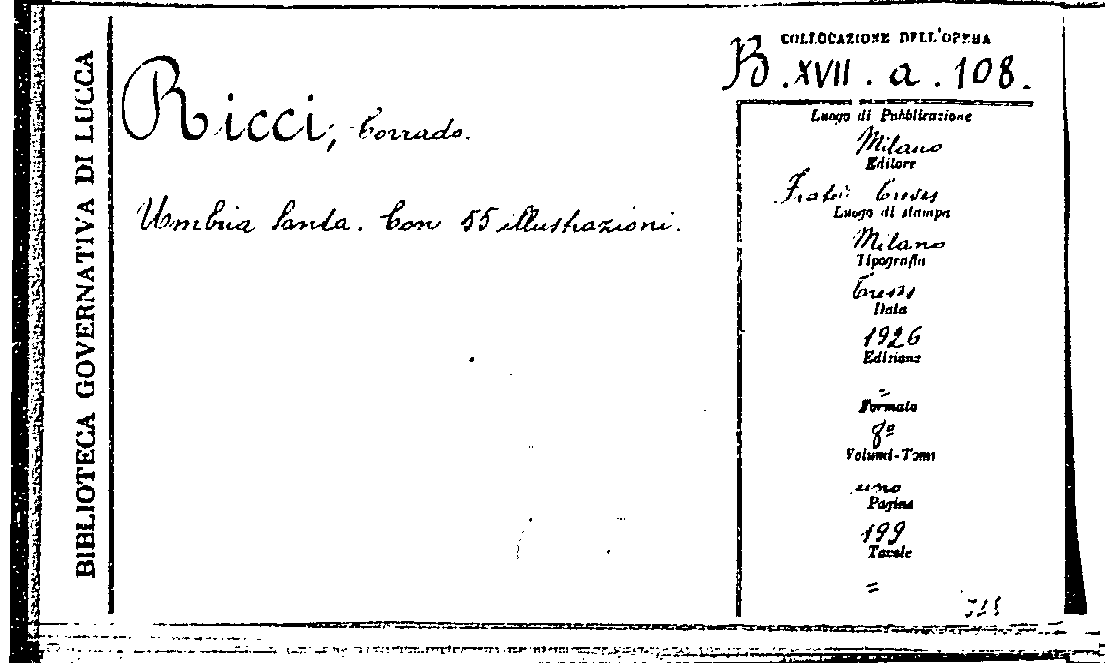 BIBLIOTECA GOVERNATIVA DI LUCCA
Ricci, Corrado.
Umbria Santa. Con 55 illustrazioni.
COLLOCAZIONE DELL'OPERA
B. XVII. a. 108.
Luogo di Pubblicazione
Milano
Editore
Frat:i Treves
Luogo di stampa
Milano
Tipografia
Treves
Data
1926
Edizione
=
Formato
8º
Volumi-Tomi
uno
Pagine
199
Tavole
=